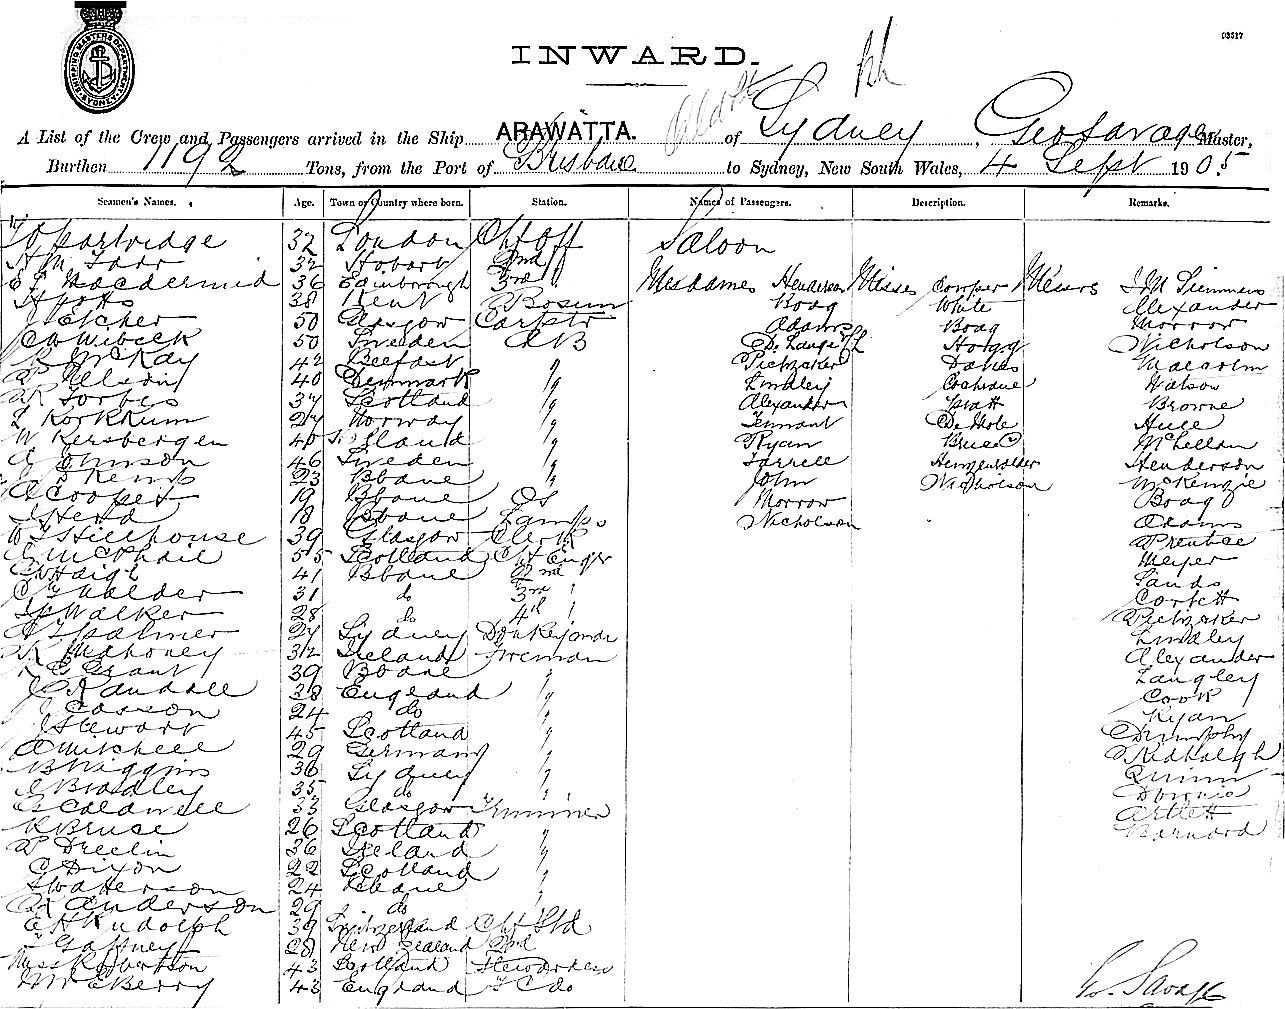 SHIPPING MASTERS DEPARTMENT SYDNEY
03517
INWARD.
A List of the Crew and Passengers arrived in the Ship ARAWATTA. of Sydney, Geo Savage Master,
Burthen 1192 Tons, from the Port of Brisbane to Sydney, New South Wales, 4 Sept 1905
Seamen's Names. Age. Town or Country where born. Station. Names of Passengers. Description. Remarks.
Partridge 32 London Chf Off Saloon
H M Todd 32 Hobart 2nd
E J Macdermid 36 Edinborough 3rd Mesdames Henderson Misses Cowper Messrs Simmons
H Potts 38 Kent Bosun Boag White Alexander
J Fletcher 50 Glasgow Carptr Adams Boag Morrow
C Wibeck 50 Sweden AB De Lange Hogg Nicholson
McKay 42 Belfast " Pietzcker Davies Malcolm
Nelson 40 Denmark " Lindley Cochrane Watson
Forbes 37 Scotland " Alexander Pratt Browne
Norway " Tennant Huge
W Kersbergen 40 Holland " Ryan Bruce McLellan
Johnson 46 Sweden " Farrell Henderson
Kemp 23 Bbane " John Nicholson McKenzie
A Cooper 19 Bbane OS Morrow Boag
J Herd 18 Bbane Lamps Nicholson Adams
Hillhouse 39 Glasgow Clerk Prentice
McPhail 55 Scotland Chf Engr Meyer
Haigh 41 Bbane 2nd " Sands
C Walder 31 do 3rd " Corbett
Walker 28 do 4th " Pietzcker
Palmer 27 Sydney Donkeyman Lindley
Mahoney 32 Ireland Fireman Alexander
Grant 39 Bbane " Langley
J Randall 38 England " Cook
Casson 24 do " Ryan
J Stewart 45 Scotland " Dunphy
A Mitchell 29 Germany " Ridhalgh
B Higgins 36 Sydney " Quinn
Bradley 35 do "
Caldwell 33 Glasgow Trimmer Artlett
R Bruce 26 Scotland " Barnard
Dreelin 36 Ireland "
C Dixon 22 Scotland "
Watterson 24 Bbane "
Anderson 29 do "
E H Rudolph 39 Switzerland Chf Std
Gaffney 28 New Zealand 2nd
Miss Robertson 43 Scotland Stewardess
Mrs E Berry 43 England F C do
Geo. Savage